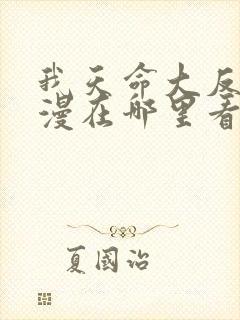 我天命大反
漫在哪里看
夏国治